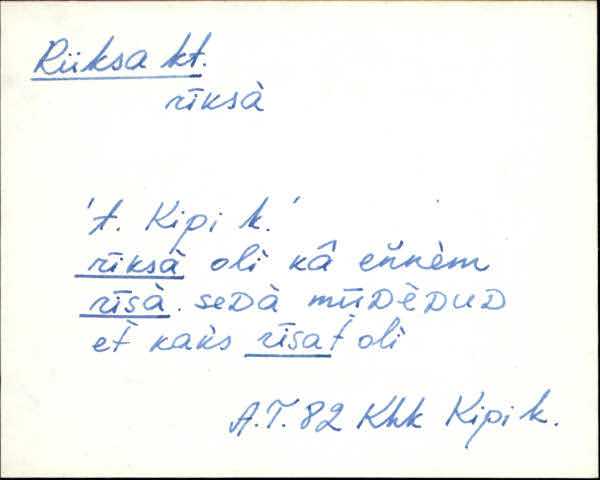 Riiksa kt.
rīksà
't. Kipi k.'
rīksà olì kâ eňnèm
rīsà. seDà mūDèDuD
et̀ kaks rīsat̀ olì
A.T. 82 Khk Kipi k.